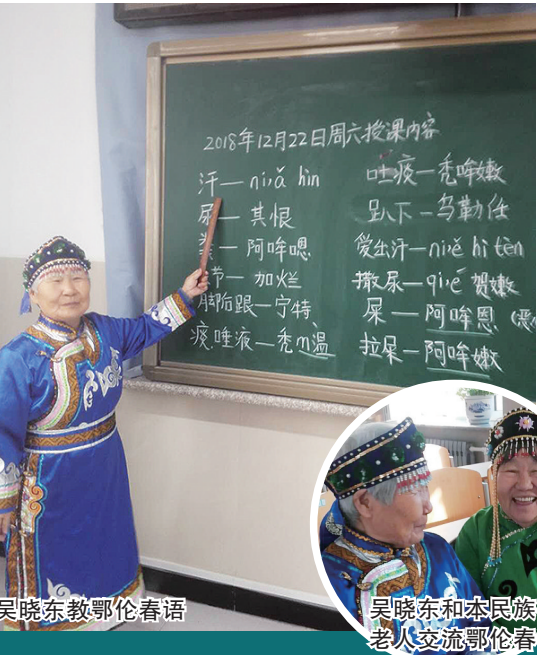 2018年12月22日周六授课内容
汗—niǎ hin
尿—其恨
粪—阿哞嗯
节—加烂
脚后跟—宁特
痰.唾液—秃m温
吐痰—秃哞嫩
趴下—乌勒任
爱出汗—niě hi tèn
撒尿—qié 贺嫩
屎—阿哞恩(恶
拉屎—阿哞嫩
吴晓东教鄂伦春语
吴晓东和本民族
老人交流鄂伦春